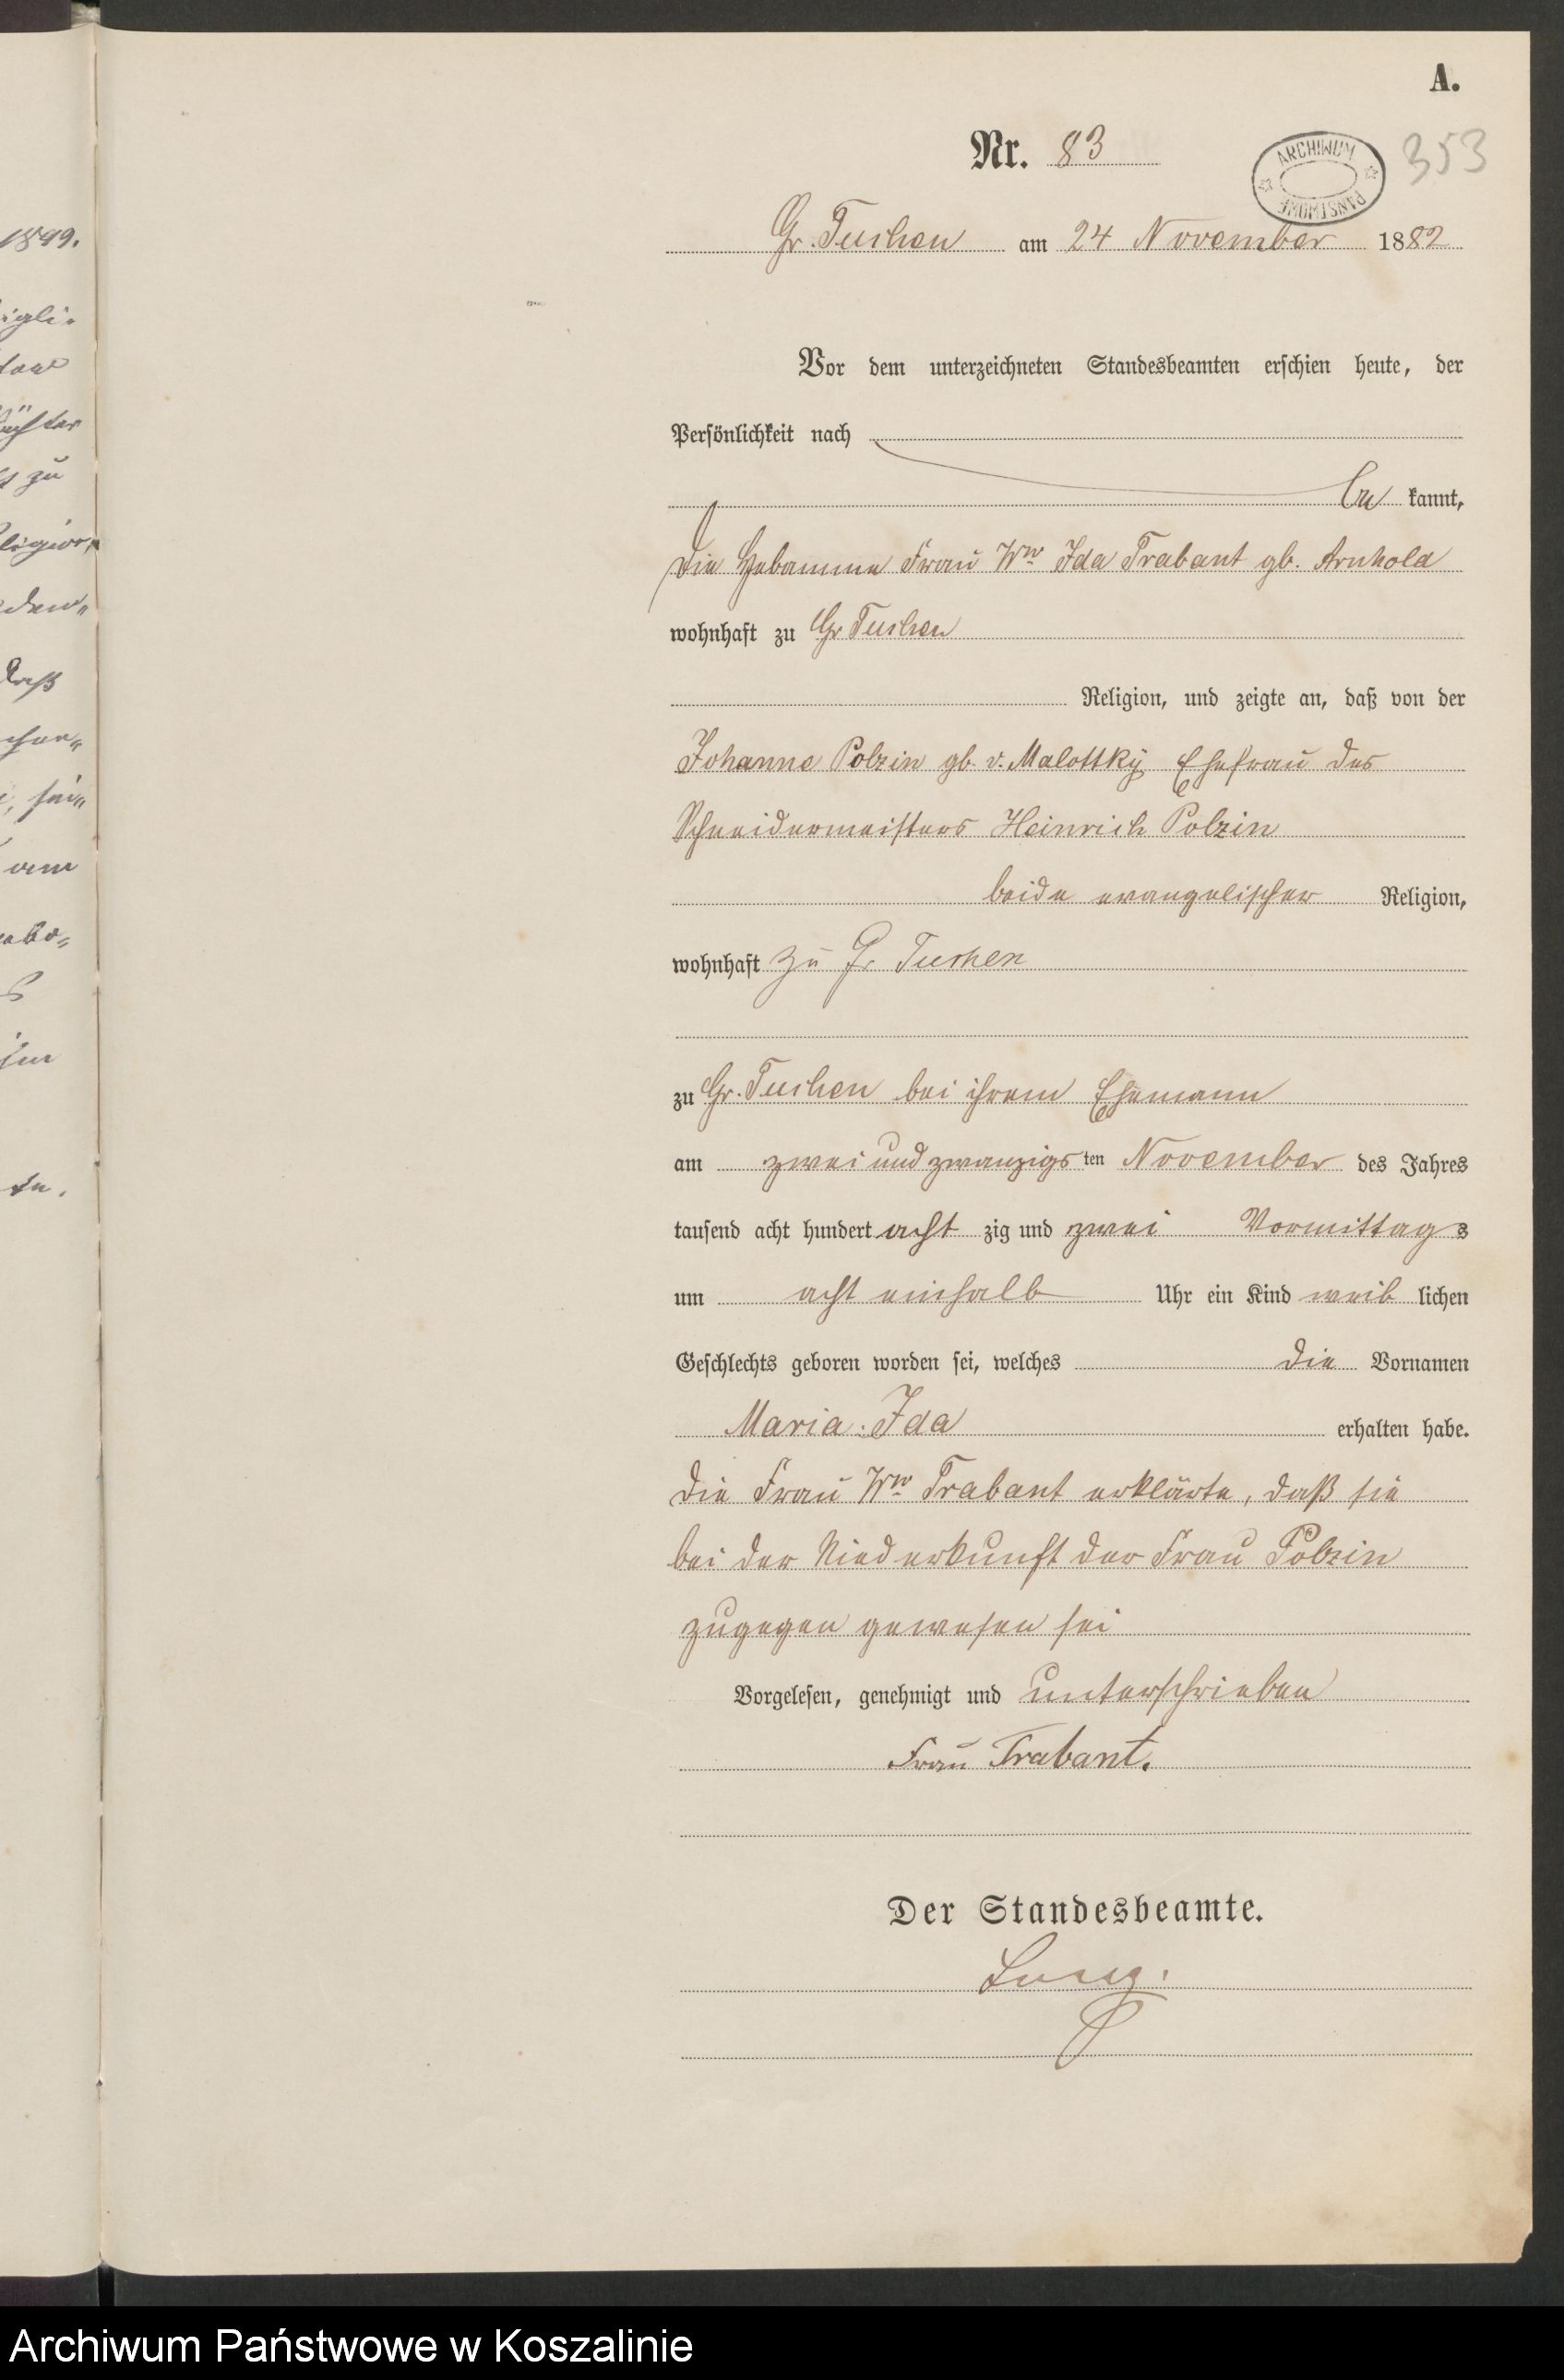 A.
Nr. 83
ARCHIWUM PAŃSTWOWE
353
Gr. Tuchen am 24 November 1882
Vor dem unterzeichneten Standesbeamten erschien heute, der
Persönlichkeit nach
be kannt,
die Hebamme Frau Ww Ida Trabant gb. Arnhold
wohnhaft zu Gr Tuchen
Religion, und zeigte an, daß von der
Johanne Polzin gb. v. Malottky Ehefrau des
Schneidermeisters Heinrich Polzin
beide evangelischer Religion,
wohnhaft zu Gr Tuchen
zu Gr. Tuchen bei ihrem Ehemann
am zwei und zwanzigsten November des Jahres
tausend acht hundert acht zig und zwei Vormittags
um acht einhalb Uhr ein Kind weib lichen
Geschlechts geboren worden sei, welches die Vornamen
Maria Ida erhalten habe.
die Frau Ww Trabant erklärte, daß sie
bei der Niederkunft der Frau Polzin
zugegen gewesen sei
Vorgelesen, genehmigt und unterschrieben
Frau Trabant.
Der Standesbeamte.
1899.
igli-
ächter
zu
den"
daß
sei"
am
im
te.
Archiwum Państwowe w Koszalinie